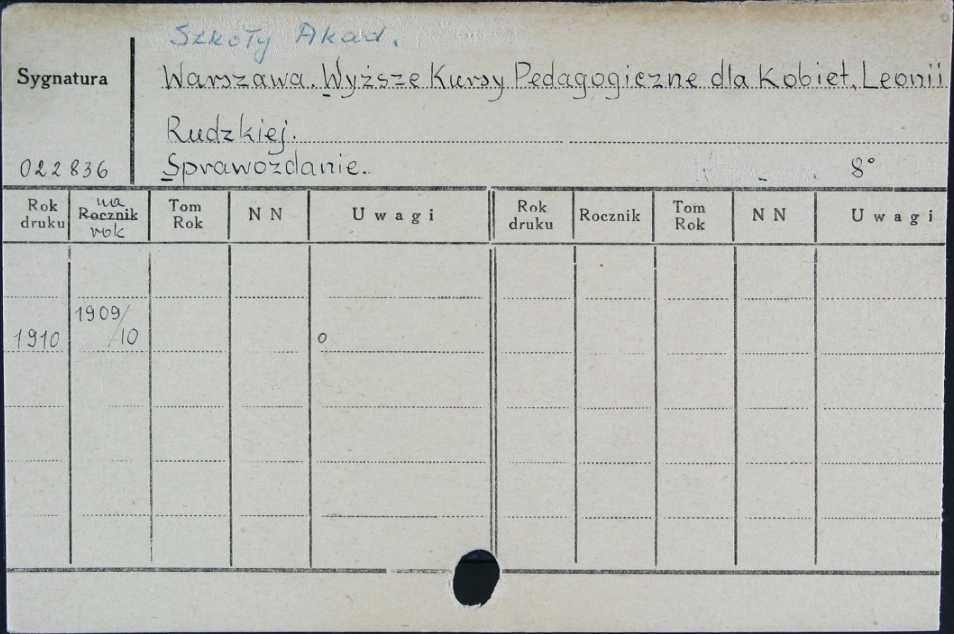 Szkoły Akad.
Sygnatura
Warszawa. Wyższe Kursy Pedagogiczne dla Kobiet, Leonii
Rudzkiej.
022836
Sprawozdanie.
8°
Rok druku
na Rocznik rok
Tom Rok
NN
Uwagi
Rok druku
Rocznik
Tom Rok
NN
Uwagi
1910
1909/10
o